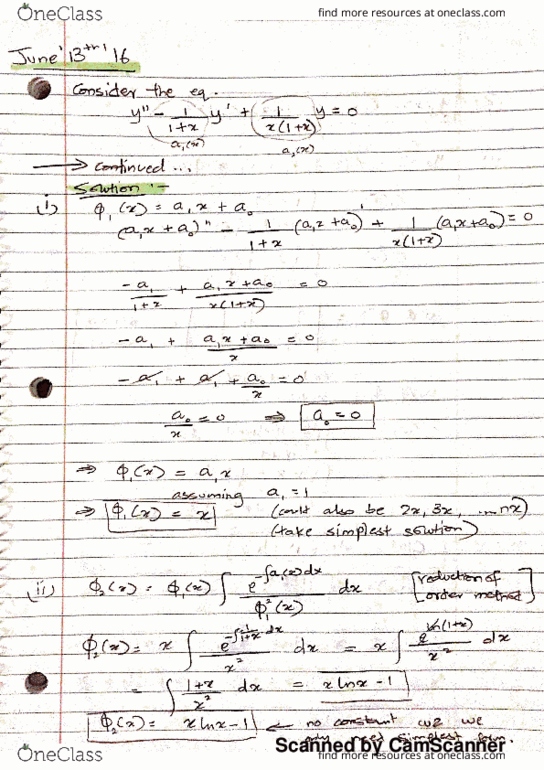 OneClass
find more resources at oneclass.com
June 13th' 16
Consider the eq.
y'' - 1/(1+x) y' + 1/(x(1+x)) y = 0
a₁(x) a₂(x)
→ continued ...
Solution :-
(i) φ₁(x) = a₁x + a₀
(a₁x + a₀)'' - 1/(1+x) (a₁x + a₀)' + 1/(x(1+x)) (a₁x + a₀) = 0
-a₁/(1+x) + (a₁x + a₀)/(x(1+x)) = 0
-a₁ + (a₁x + a₀)/x = 0
-a₁ + a₁ + a₀/x = 0
a₀/x = 0 ⇒ a₀ = 0
⇒ φ₁(x) = a₁x
assuming a₁ = 1
⇒ φ₁(x) = x (could also be 2x, 3x, ... nx)
(take simplest solution)
(ii) φ₂(x) = φ₁(x) ∫ e^(-∫a₁(x)dx) / φ₁²(x) dx [reduction of order method]
φ₂(x) = x ∫ e^(-∫-1/(1+x) dx) / x² dx = x ∫ e^(ln(1+x)) / x² dx
= ∫ (1+x)/x² dx = x ln x - 1
φ₂(x) = x ln x - 1 ← no constant cuz we
only need simplest
Scanned by CamScanner
OneClass
find more resources at oneclass.com